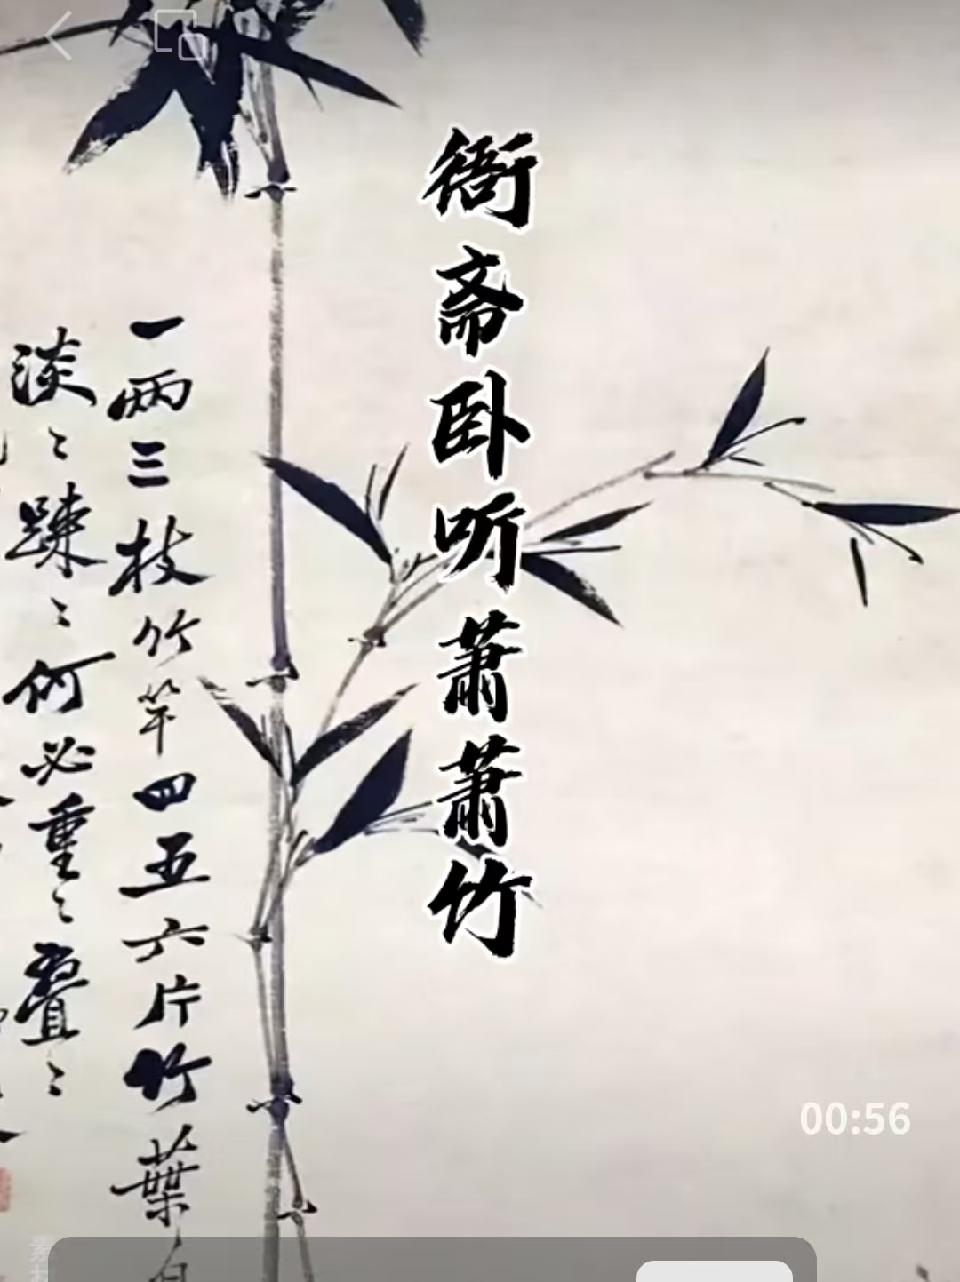 衙斋卧听萧萧竹
一两三枝竹竿四五六片竹葉自
淡〻踈〻何必重〻疊〻
00:56